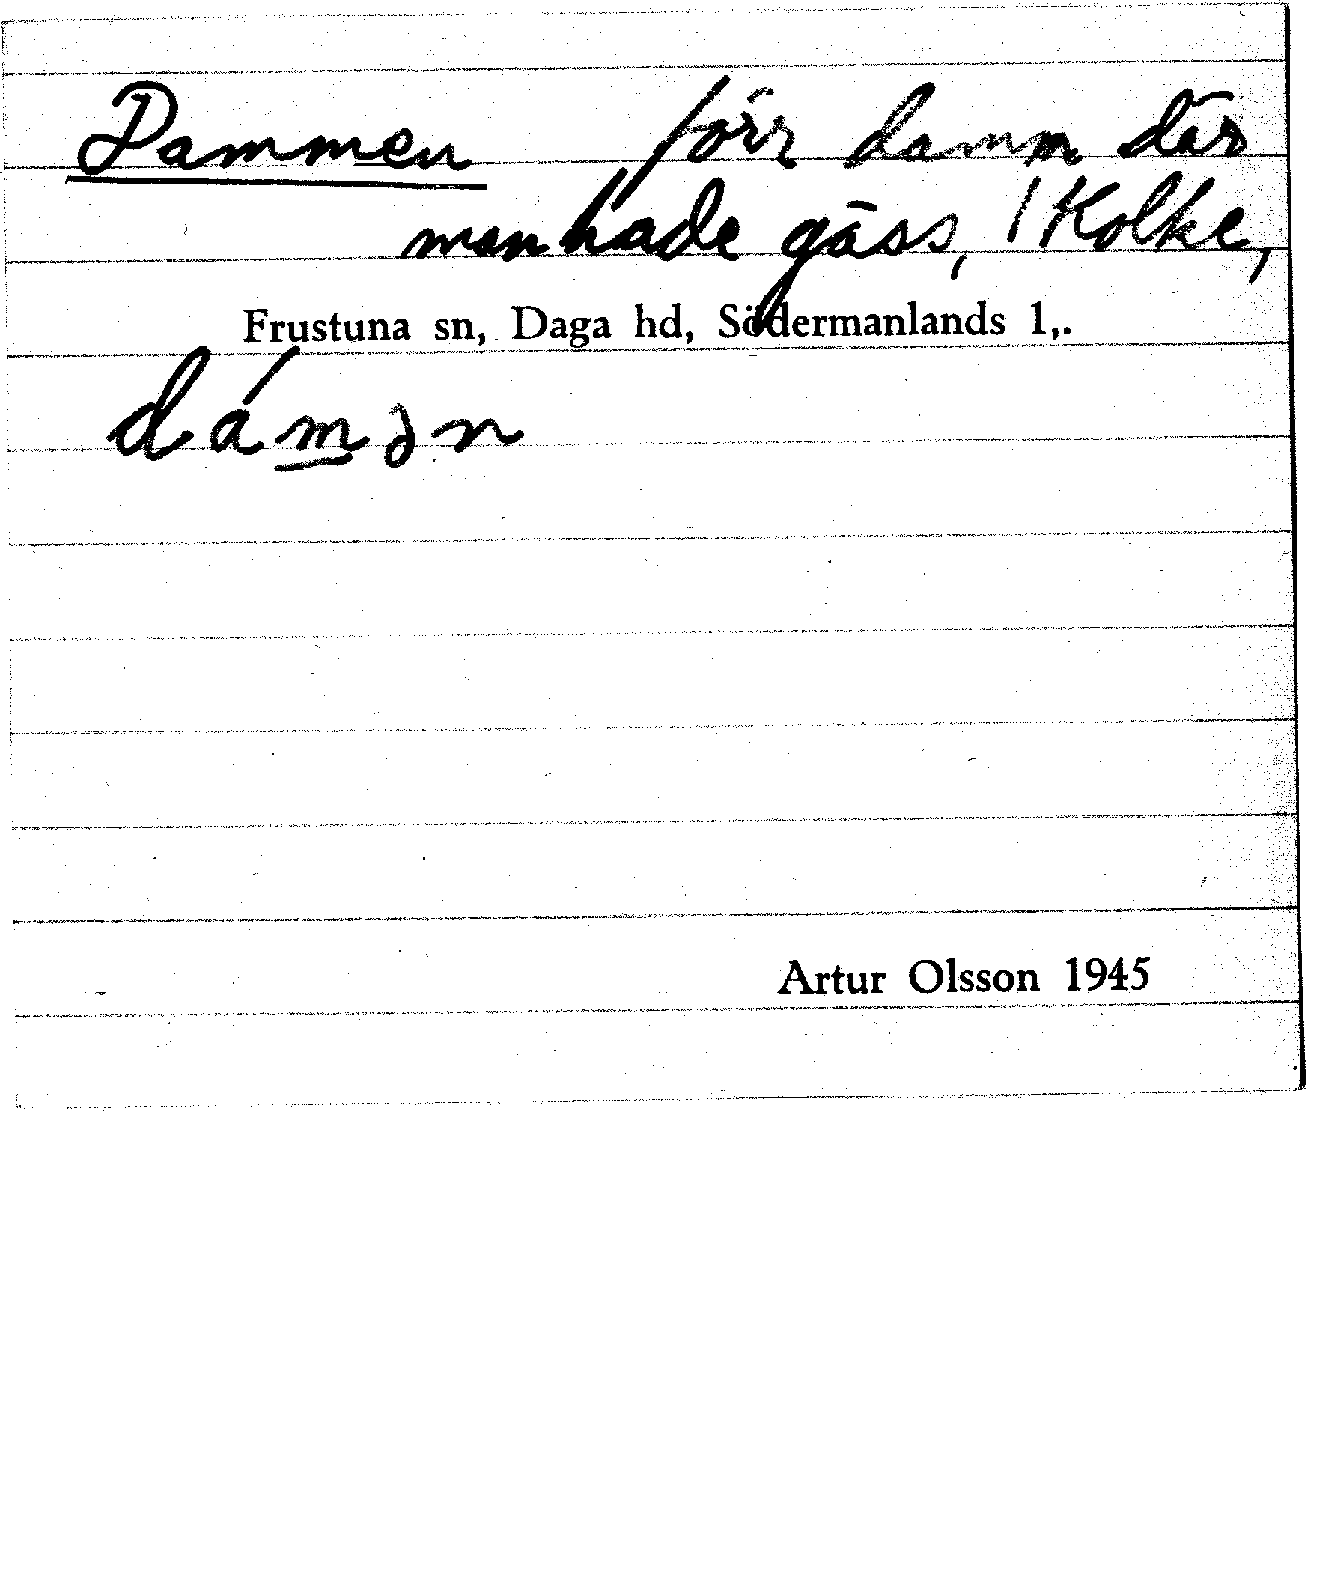 Dammen förr damm där
man hade gäss, / Kolke,
Frustuna sn, Daga hd, Södermanlands l,.
dámən
Artur Olsson 1945